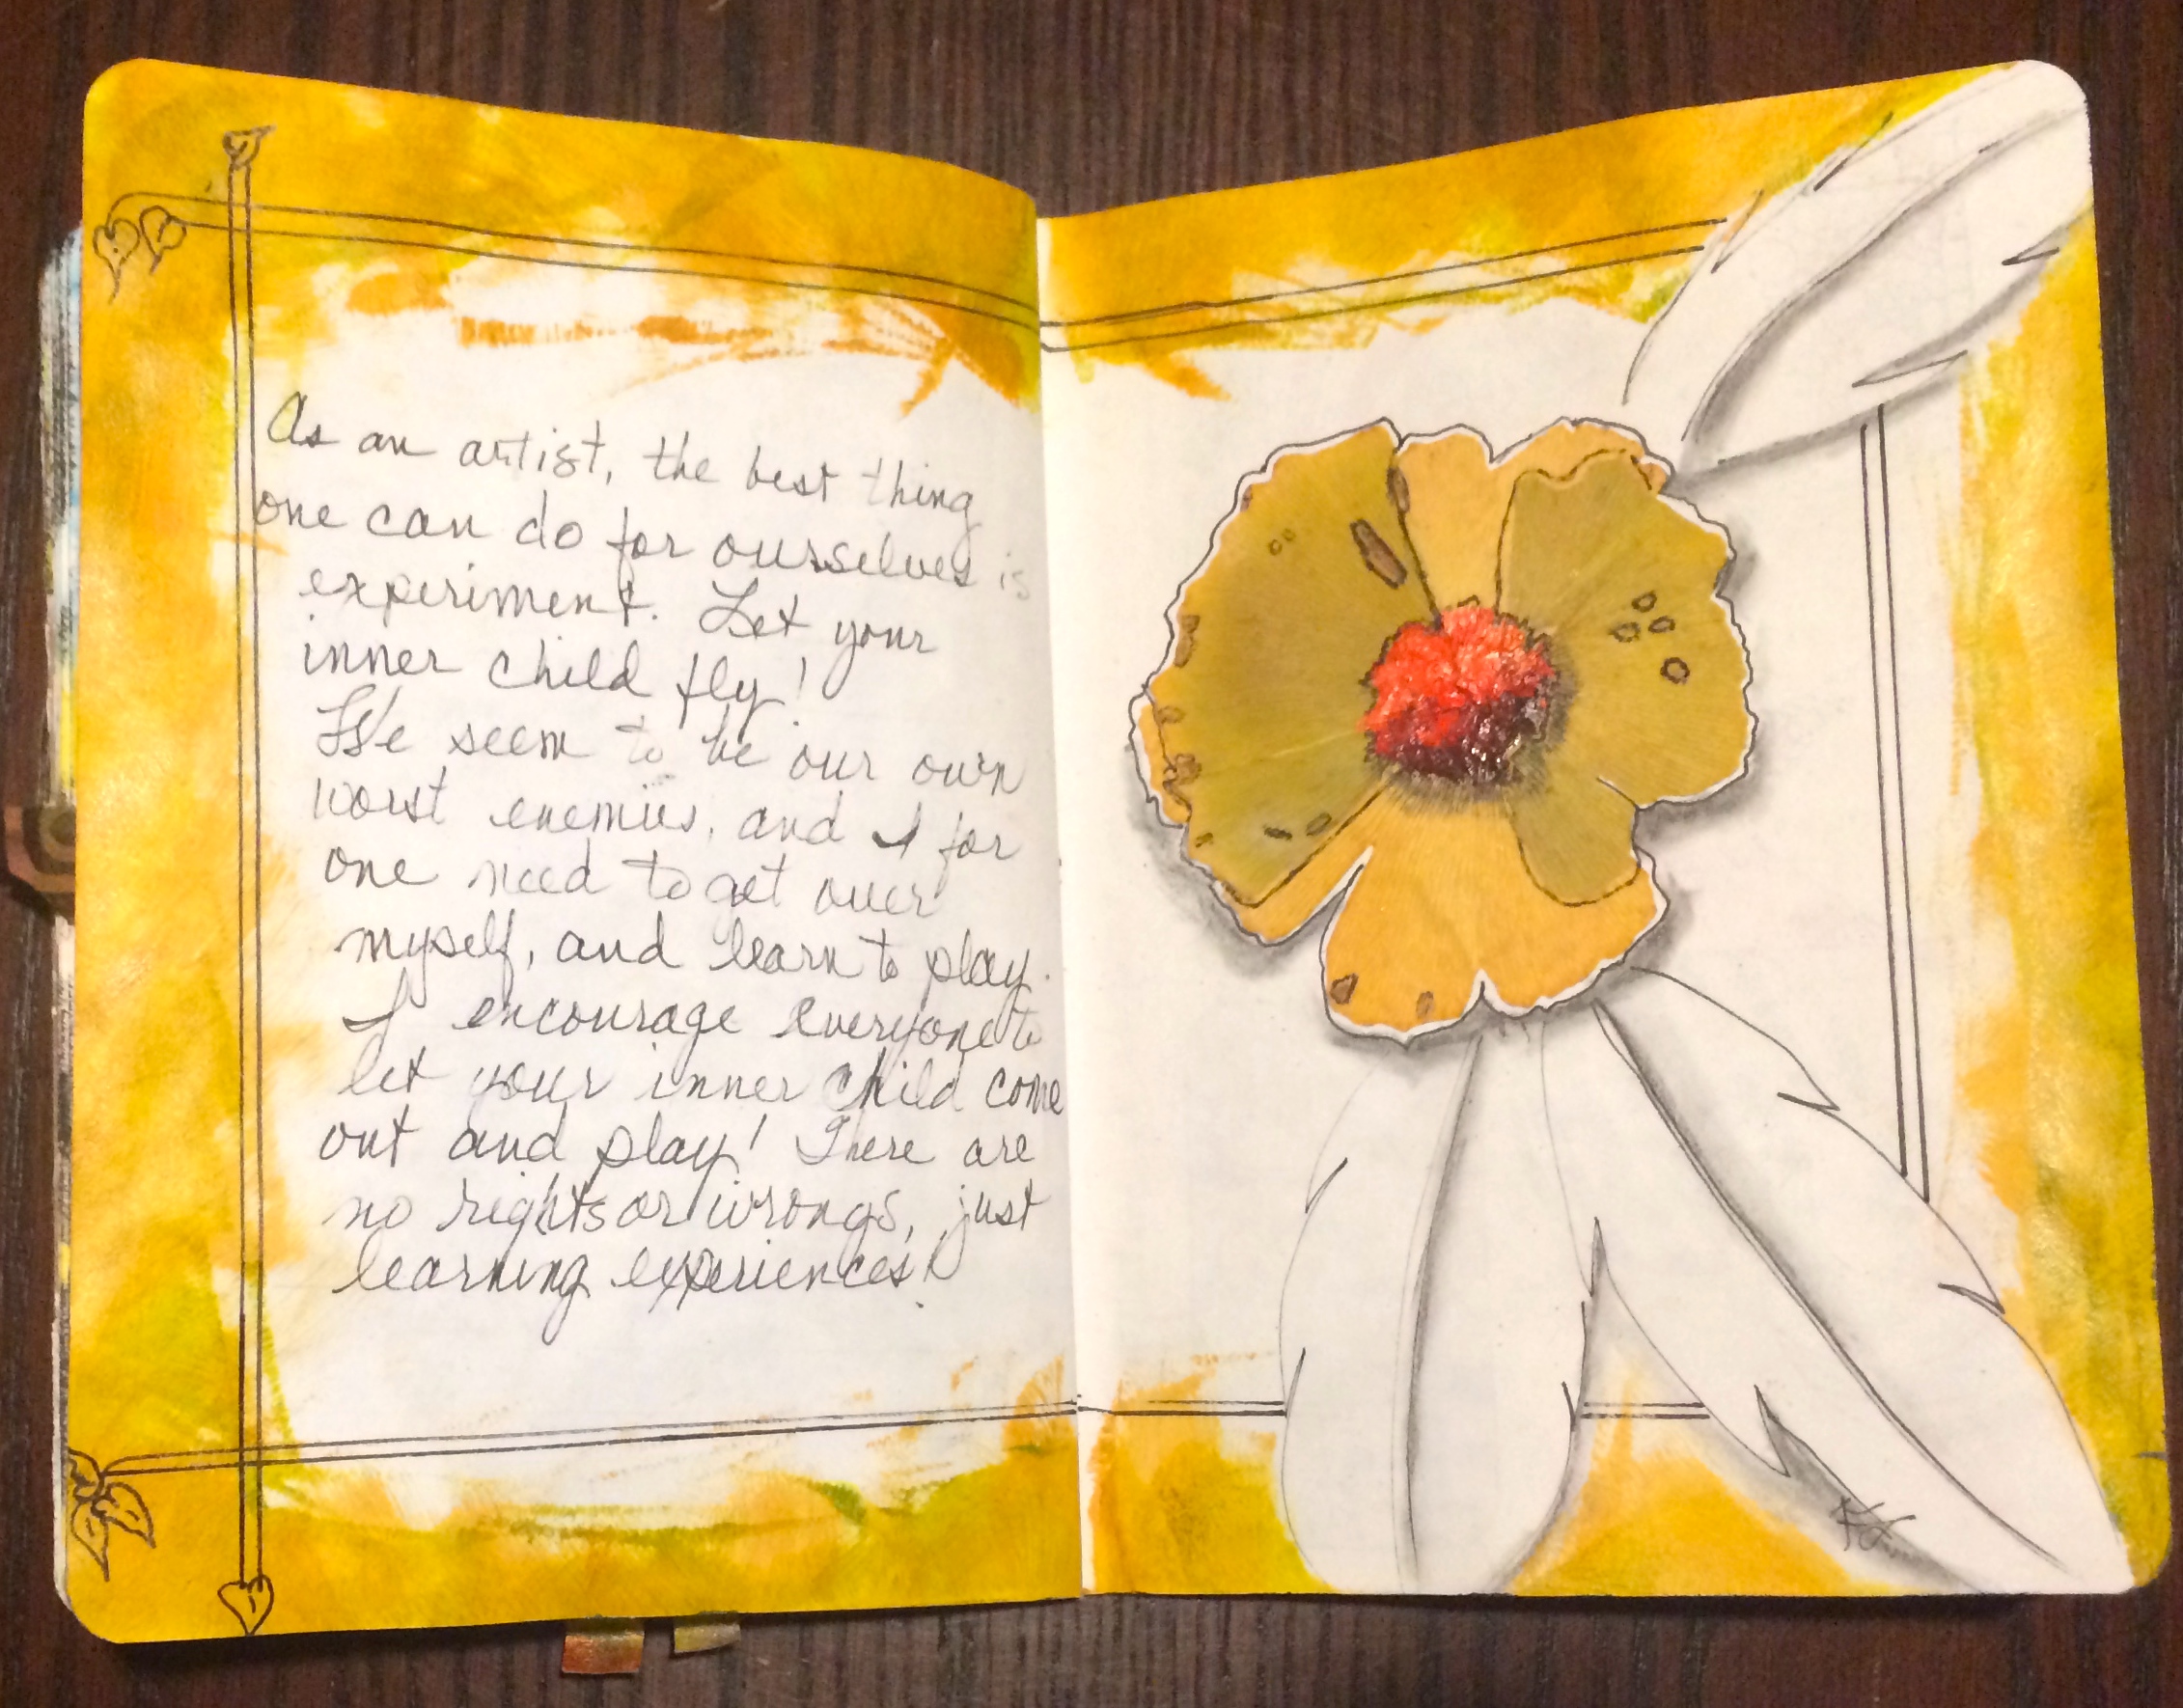 As an artist, the best thing
one can do for ourselves is
experiment. Let your
inner child fly!
We seem to be our own
worst enemies, and I for
one need to get over
myself, and learn to play.
I encourage everyone to
let your inner child come
out and play! There are
no rights or wrongs, just
learning experiences!